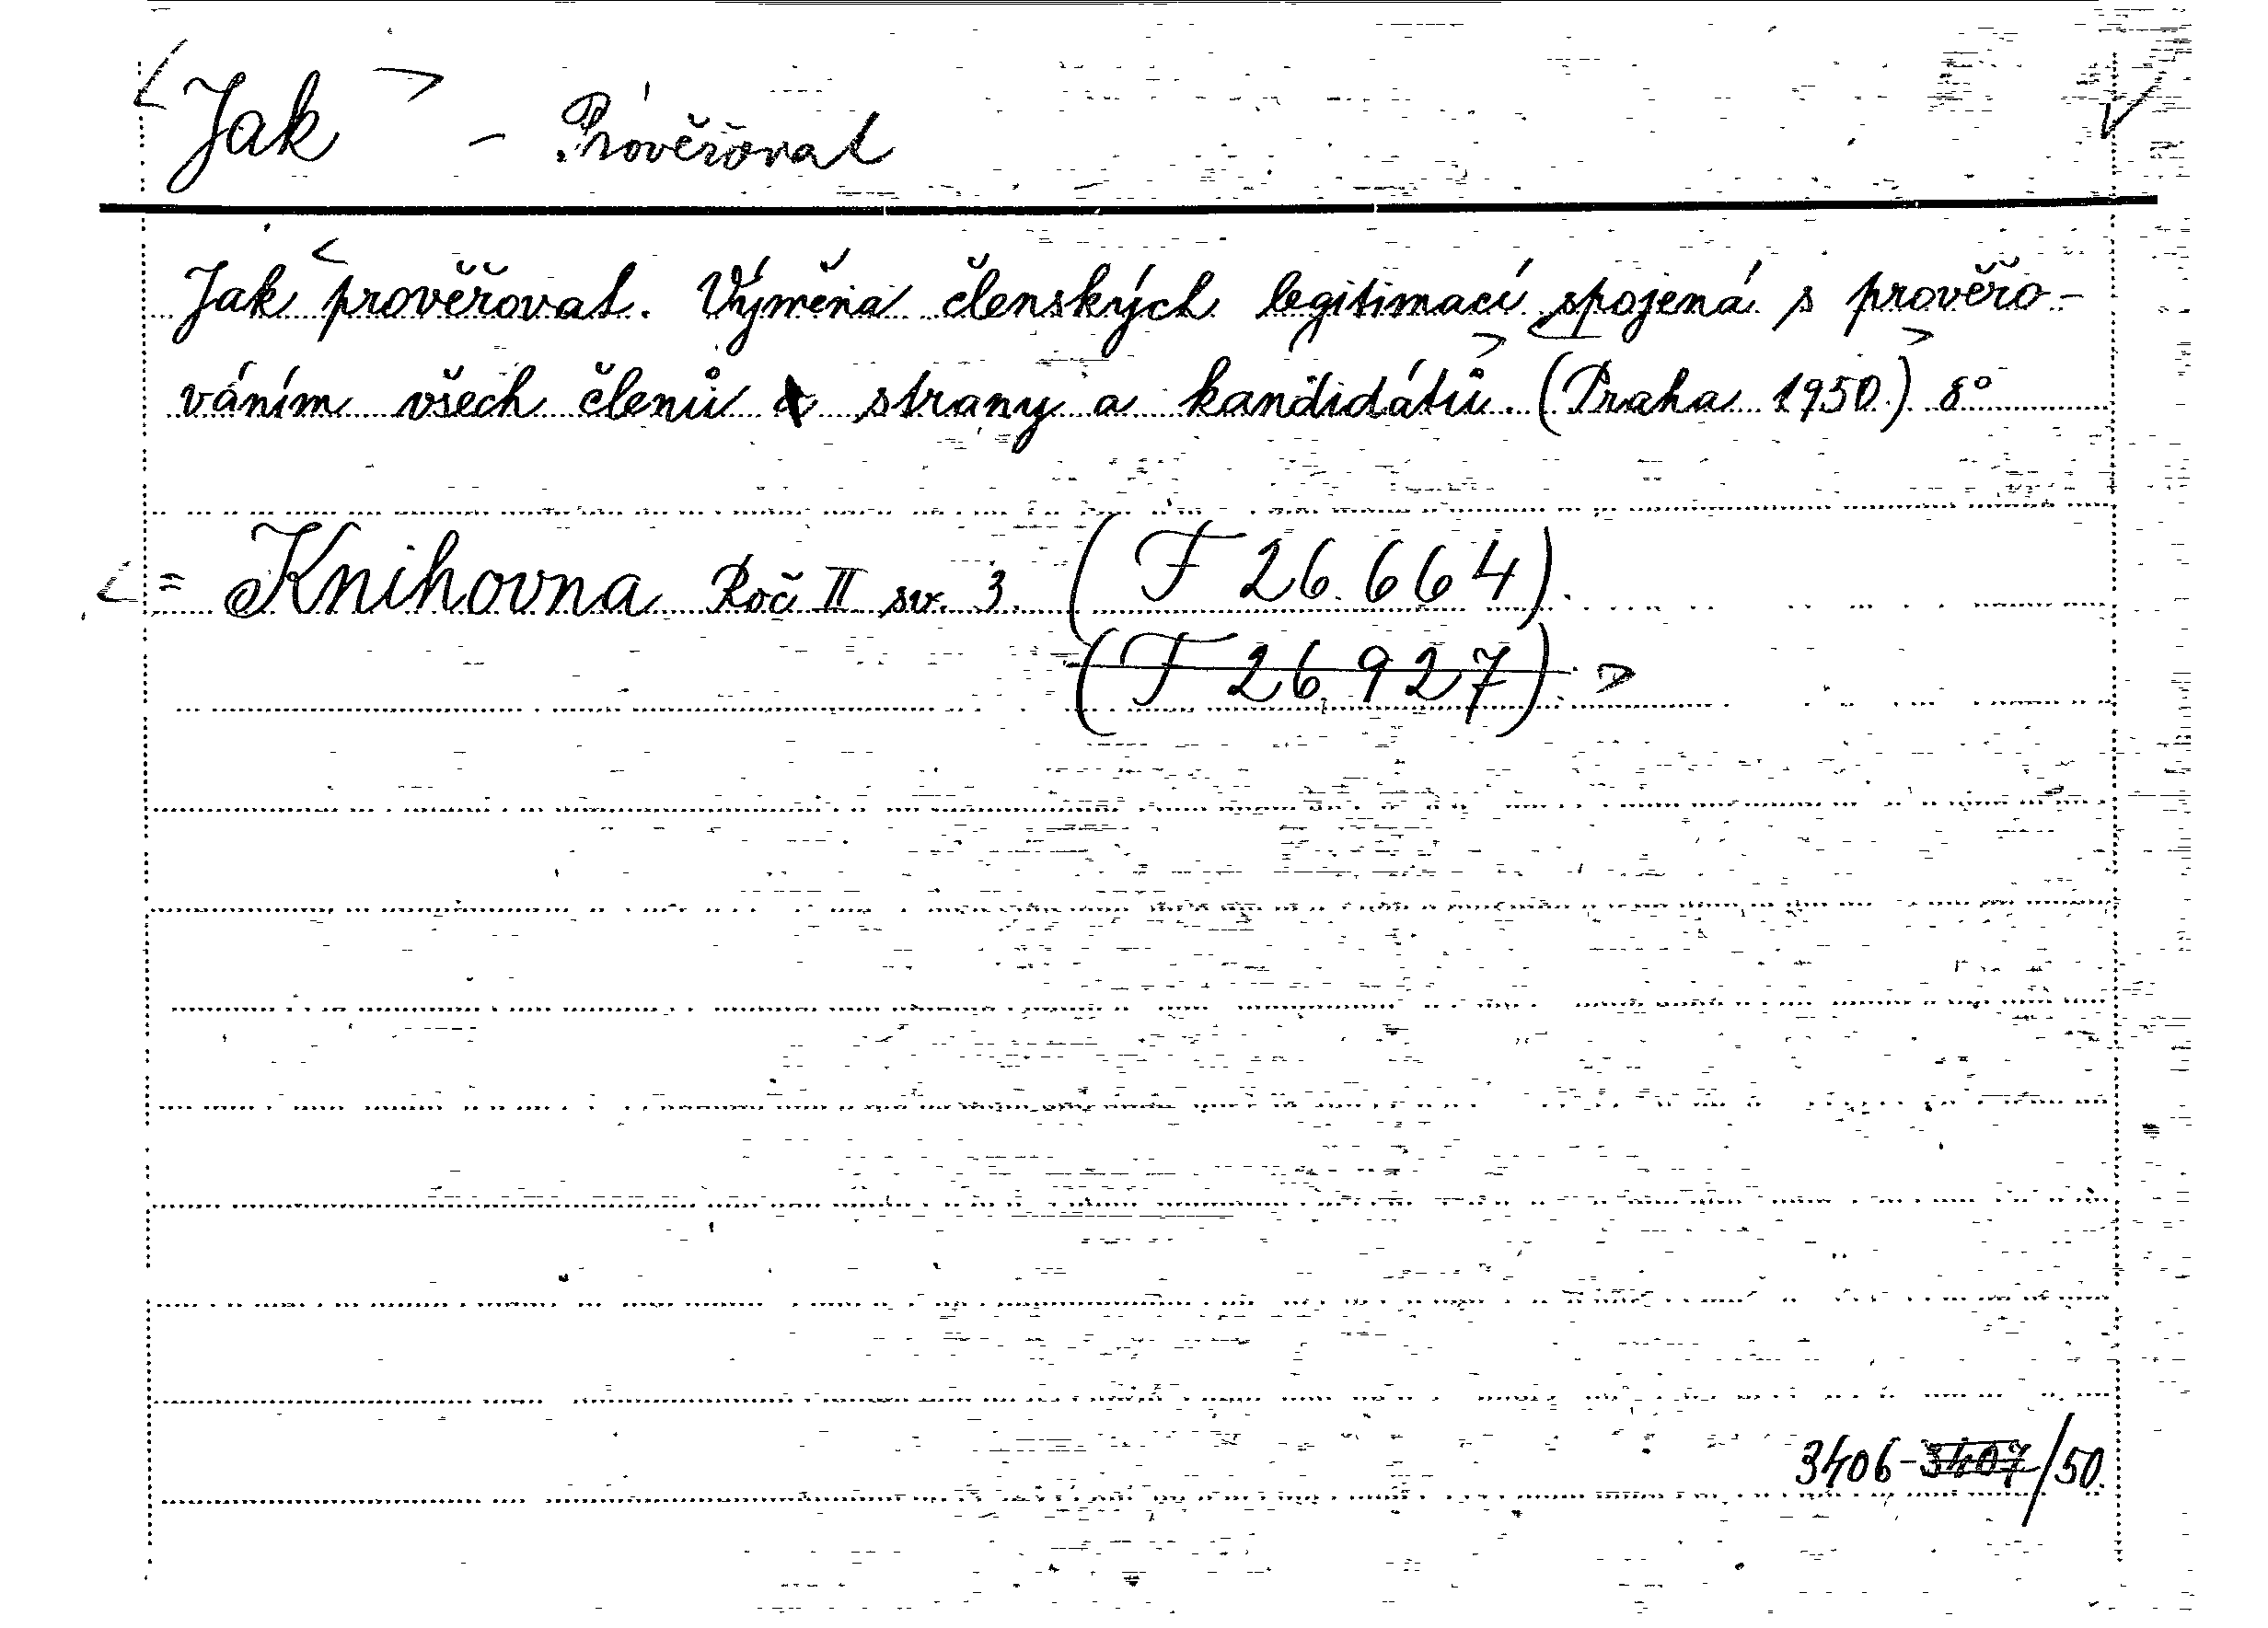 Jak - Prověřovat
Jak prověřovat. Výměna členských legitimací spojená s prověřo-
váním všech členů strany a kandidátů. (Praha 1950.) 8°
= Knihovna Roč II sv. 3. (F 26.664).
(F 26.927).
3406-3407/50.